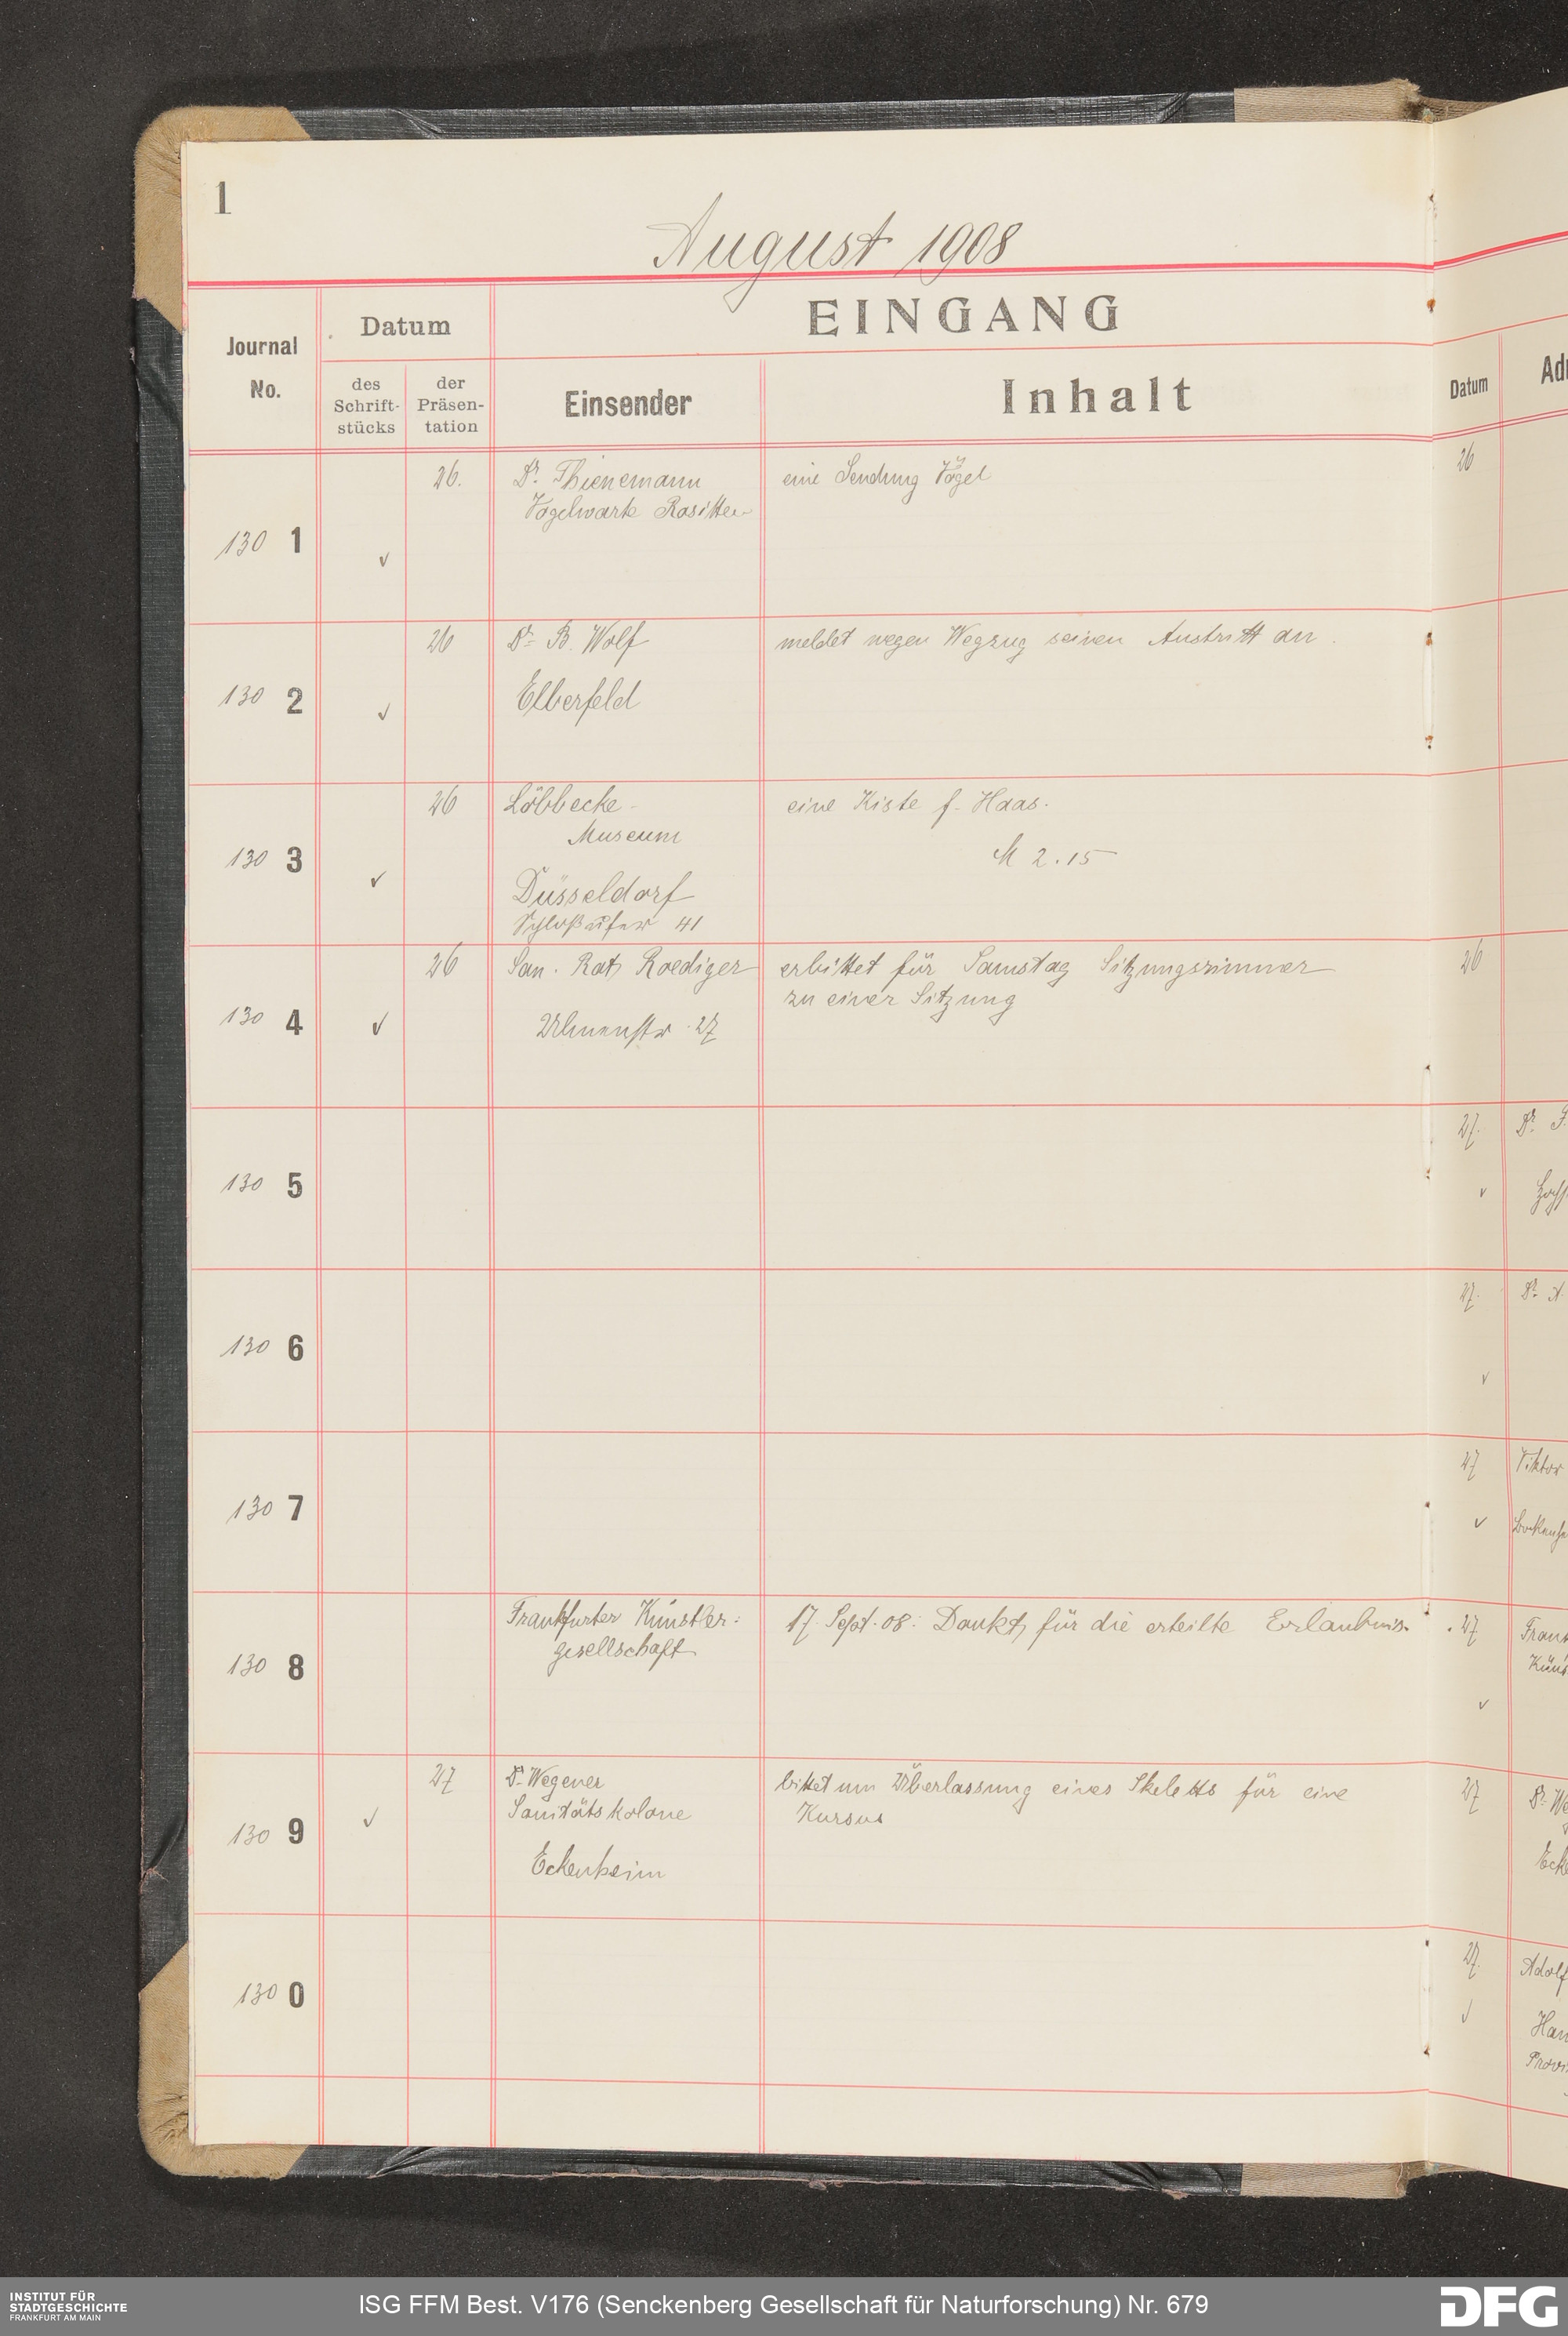 1
August 1908
Journal No.
Datum
EINGANG
des Schrift-stücks
der Präsen-tation
Einsender
Inhalt
Datum
130 1
26.
Dr. Thienemann
Vogelwarte Rositten
eine Sendung Vögel
26
130 2
26
Dr. B. Wolf
Elberfeld
meldet wegen Wegzug seinen Austritt an.
130 3
26
Löbbecke-
Museum
Düsseldorf
Schloßufer 41
eine Kiste f. Haas.
M 2.15
130 4
26
San. Rat Roediger
Ulmenstr. 27
erbittet für Samstag Sitzungszimmer
zu einer Sitzung
26
130 5
27.
Dr.
130 6
27.
Dr. A.
130 7
27
Viktor
130 8
Frankfurter Künstler-
gesellschaft
17. Sept. 08: Dankt für die erteilte Erlaubnis.
27
130 9
27
Dr. Wegener
Sanitätskolone
Eckenheim
bittet um Überlassung eines Skeletts für eine
Kursus
27
Dr. We
Ecke
130 0
27.
Adolf
Han
Provi
INSTITUT FÜR
STADTGESCHICHTE
FRANKFURT AM MAIN
ISG FFM Best. V176 (Senckenberg Gesellschaft für Naturforschung) Nr. 679
DFG